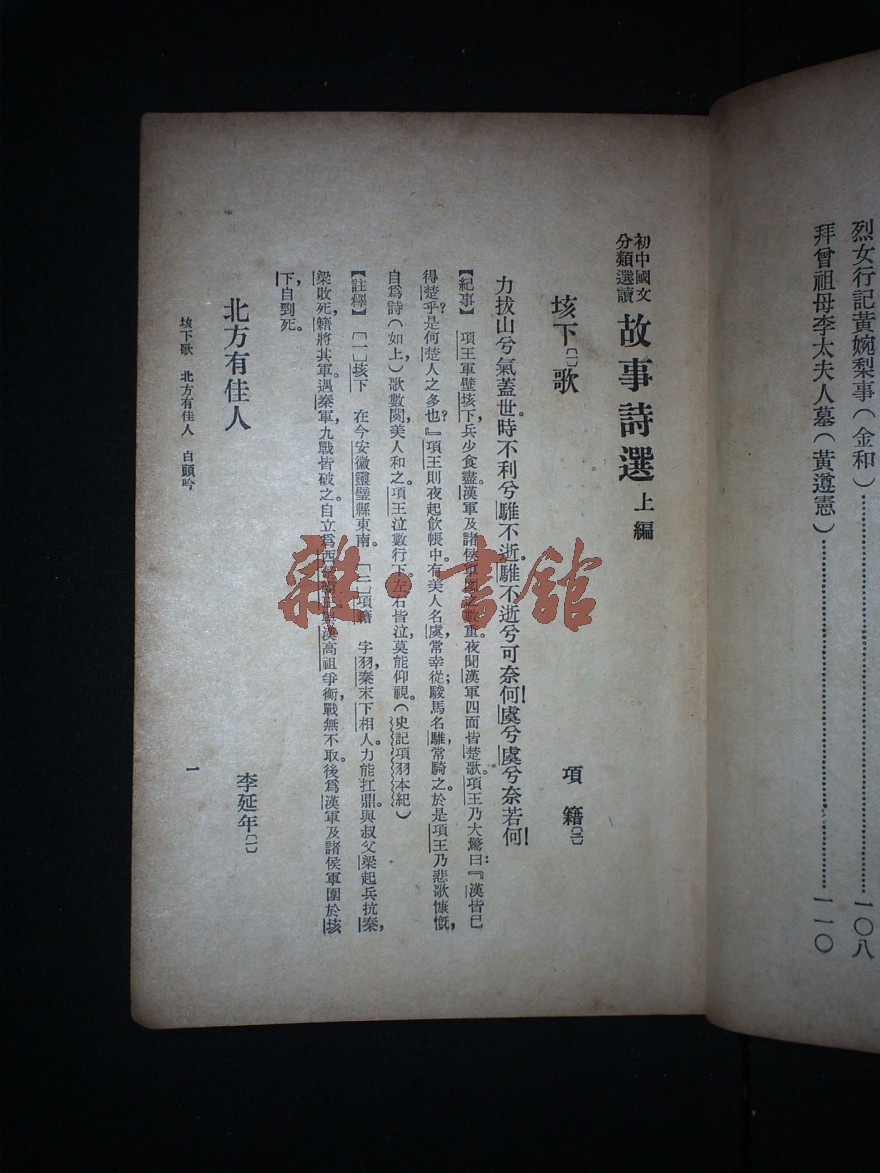 烈女行記黃婉梨事(金和)……一〇八
拜曾祖母李太夫人墓(黃遵憲)……一一〇
初中國文
分類選讀
故事詩選 上編
垓下〔一〕歌
項籍〔二〕
力拔山兮氣蓋世。時不利兮騅不逝。騅不逝兮可奈何!虞兮虞兮奈若何!
【紀事】 項王軍壁垓下,兵少食盡。漢軍及諸侯軍圍之數重。夜聞漢軍四面皆楚歌。項王乃大驚曰:『漢皆已
得楚乎?是何楚人之多也?』項王則夜起飲帳中。有美人名虞,常幸從;駿馬名騅,常騎之。於是項王乃悲歌慷慨,
自爲詩(如上)歌數闋,美人和之。項王泣數行下。左右皆泣,莫能仰視。(史記項羽本紀)
【註釋】 〔一〕垓下 在今安徽靈璧縣東南。 〔二〕項籍 字羽,秦末下相人。力能扛鼎。與叔父梁起兵抗秦,
梁敗死,籍將其軍。遇秦軍,九戰皆破之。自立爲西楚霸王。與漢高祖爭衡,戰無不取。後爲漢軍及諸侯軍圍於垓
下,自刭死。
北方有佳人
李延年〔一〕
垓下歌 北方有佳人 白頭吟
一
雜·書館